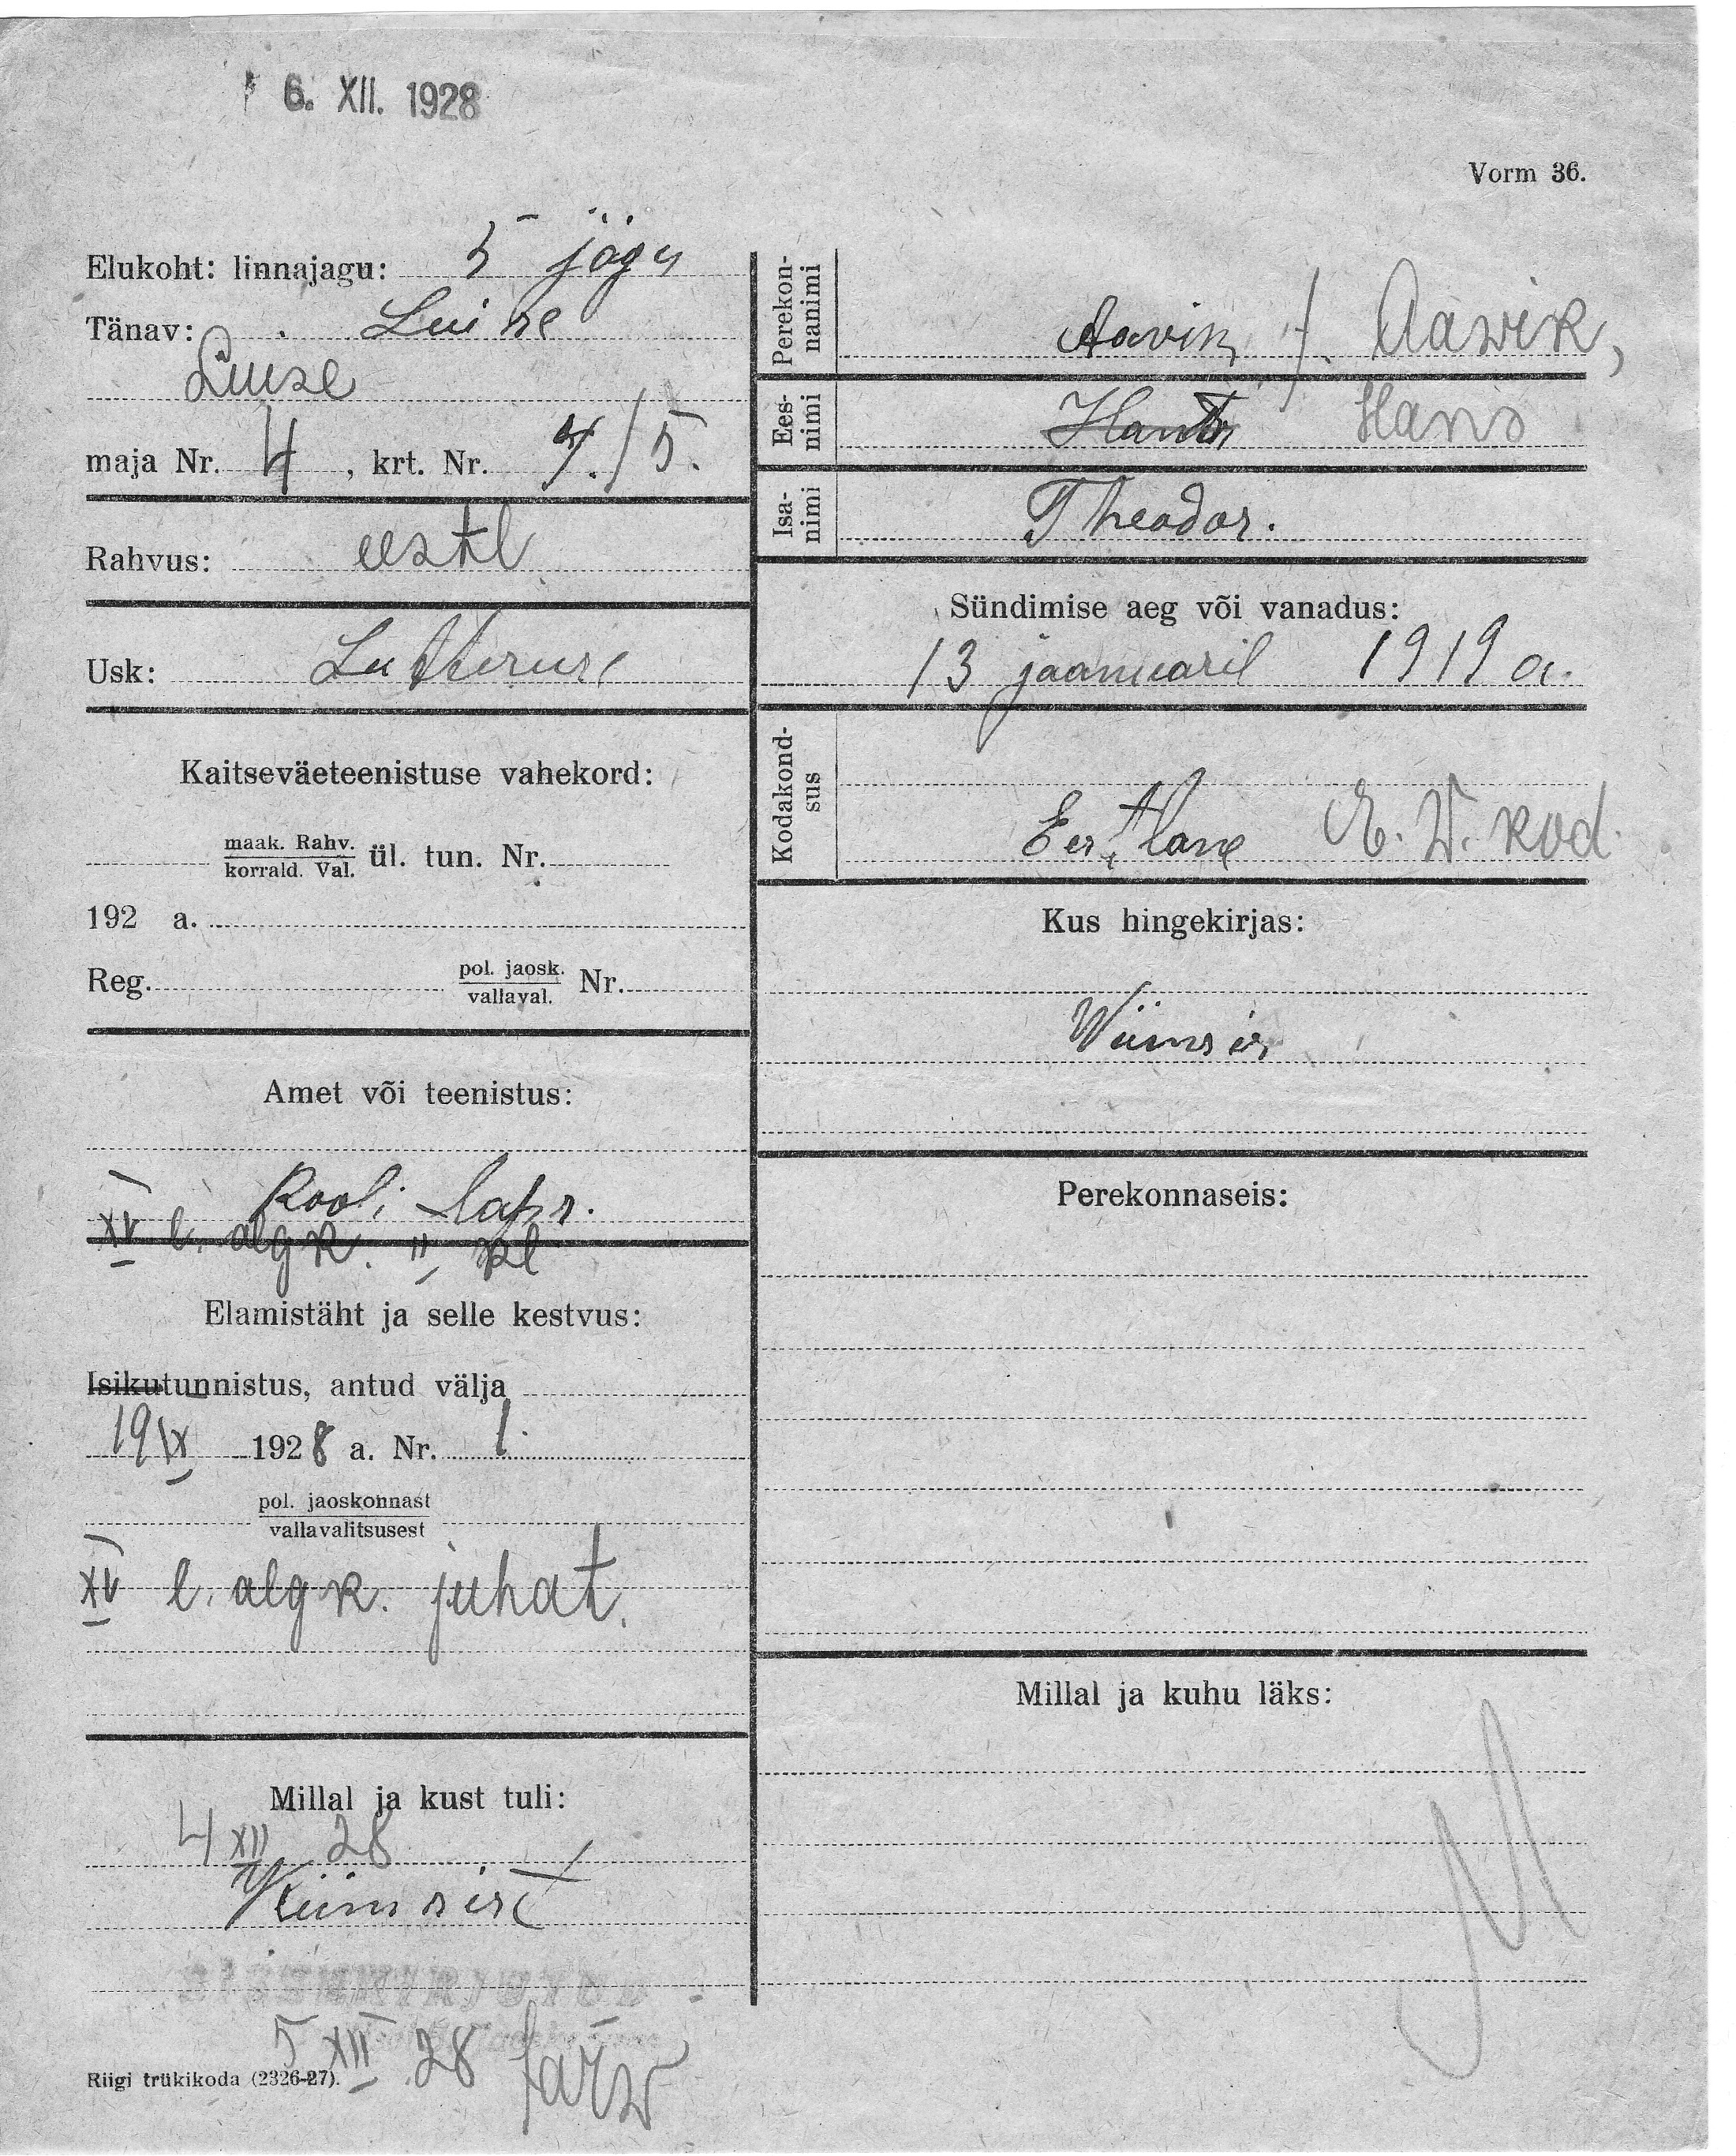 6. XII. 1928
Vorm 36.
Elukoht: linnajagu: 5 jagu
Tänav: Luise
Luise
maja Nr. 4, krt. Nr. 7./5.
Rahvus: eestl
Usk: Lutteruse
Kaitseväeteenistuse vahekord:
maak. Rahv.
korrald. Val. ül. tun. Nr.
192 a.
Reg. pol. jaosk.
vallaval. Nr.
Amet või teenistus:
Kooli laps.
XV l. algk. II kl
Elamistäht ja selle kestvus:
Isikutunnistus, antud välja
19 IX 1928 a. Nr. 1.
pol. jaoskonnast
vallavalitsusest
XV l. algk. juhat.
Millal ja kust tuli:
4 XII 28
Wiimsist
SISSEKIRJUTUD
5 XII 28
Riigi trükikoda (2326-27).
Perekon-
nanimi
Aavik /. Aawik,
Ees-
nimi
Hans Hans
Isa-
nimi
Theodor.
Sündimise aeg või vanadus:
13 jaanuaril 1919 a.
Kodakond-
sus
Eestlane E. W. kod.
Kus hingekirjas:
Wiimsis
Perekonnaseis:
Millal ja kuhu läks: